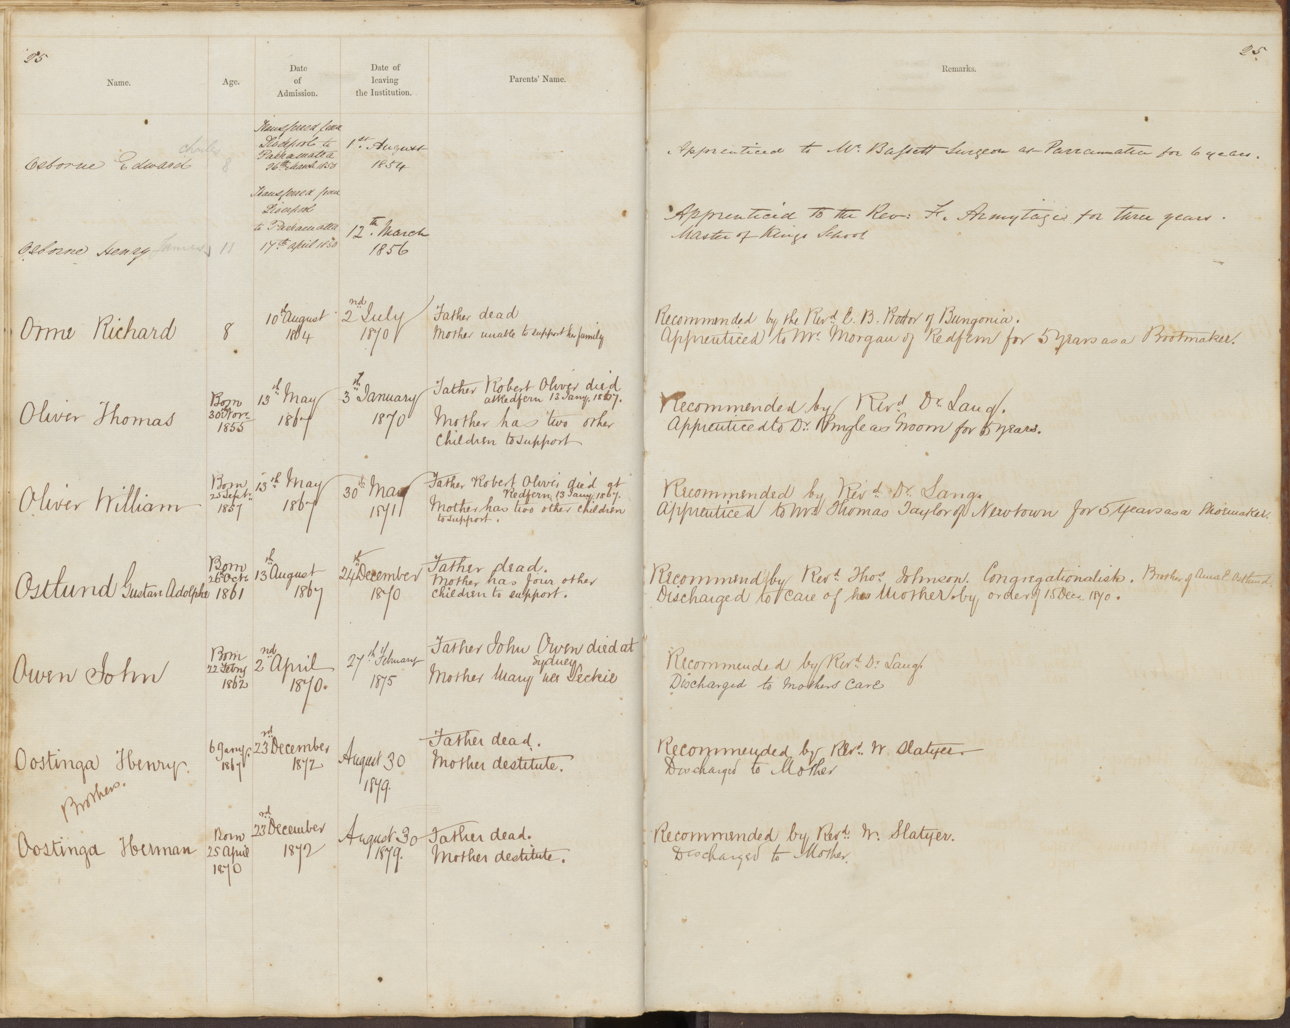 95
95
Name.
Age.
Date
of
Admission.
Date of
leaving
the Institution.
Parents' Name.
Remarks.
Osborne Edward Charles
8
Transferred from
Liverpool to
Parramatta
1850
1st August
1854
Apprenticed to Mr Bassett Surgeon at Parramatta for 6 years.
Osborne Henry James
11
Transferred from
Liverpool
to Parramatta
17th april 1850
12th March
1856
Apprenticed to the Rev: F. Armytage for three years.
Master of Kings School
Orme Richard
8
10th August
1864
2nd July
1870
Father dead
Mother unable to support her family
Recommended by the Revd E. B. Proctor of Bungonia.
Apprenticed to Mr Morgan of Redfern for 5 years as a Bootmaker.
Oliver Thomas
Born
30 Novr
1855
13th May
1867
3rd January
1870
Father Robert Oliver died
at Redfern 13 Jany. 1867.
Mother has two other
children to support
Recommended by Revd Dr Lang.
Apprenticed to Dr. Pringle as Groom for 5 years.
Oliver William
Born
25 Sept.
1857
13th May
1867
30th May
1871
Father Robert Oliver died at
Redfern 13 Jany. 1867.
Mother has two other children
to support.
Recommended by Revd Dr Lang.
Apprenticed to Mr Thomas Taylor of Newtown for 5 Years as a Shoemaker.
Ostlund Gustav Adolphe
Born
26 Octr
1861
13th August
1867
24th December
1870
Father dead.
Mother has four other
children to support.
Recommend by Revd Thos Johnson. Congregationalist. Brother of
Discharged to care of his Mother by order of 15 Decr 1870.
Owen John
Born
22 Febry
1862
2nd April
1870.
27th of February
1875
Father John Owen died at
Sydney
Mother Mary nee Leckie
Recommended by Revd Dr Lang
Discharged to Mothers Care
Oostinga Henry.
6 Jany
1867
23rd December
1872
August 30
1879.
Father dead.
Mother destitute.
Recommended by Revd W. Slatyer
Discharged to Mother
Brothers.
Oostinga Herman
Born
25 April
1870
23rd December
1872
August 30
1879.
Father dead.
Mother destitute.
Recommended by Revd W. Slatyer.
Discharged to Mother.